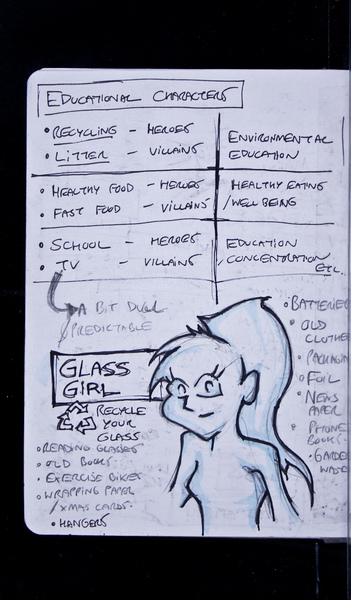 EDUCATIONAL CHARACTERS
• RECYCLING – HEROES
• LITTER – VILLAINS
ENVIRONMENTAL
EDUCATION
• HEALTHY FOOD – HEROES
• FAST FOOD – VILLAINS
HEALTHY EATING
/WELL BEING
• SCHOOL – HEROES
• TV – VILLAINS
EDUCATION
/CONCENTRATION
ETC.
A BIT DULL
/PREDICTABLE
GLASS
GIRL
RECYCLE
YOUR
GLASS
• READING GLASSES
• OLD BOOKS
• EXERCISE BIKES
• WRAPPING PAPER
/XMAS CARDS.
• HANGERS
• BATTERIES
• OLD
CLOTHE
• PACKAGIN
• FOIL
• NEWS
PAPER
• PHONE
BOOKS.
• GARDE
WAST